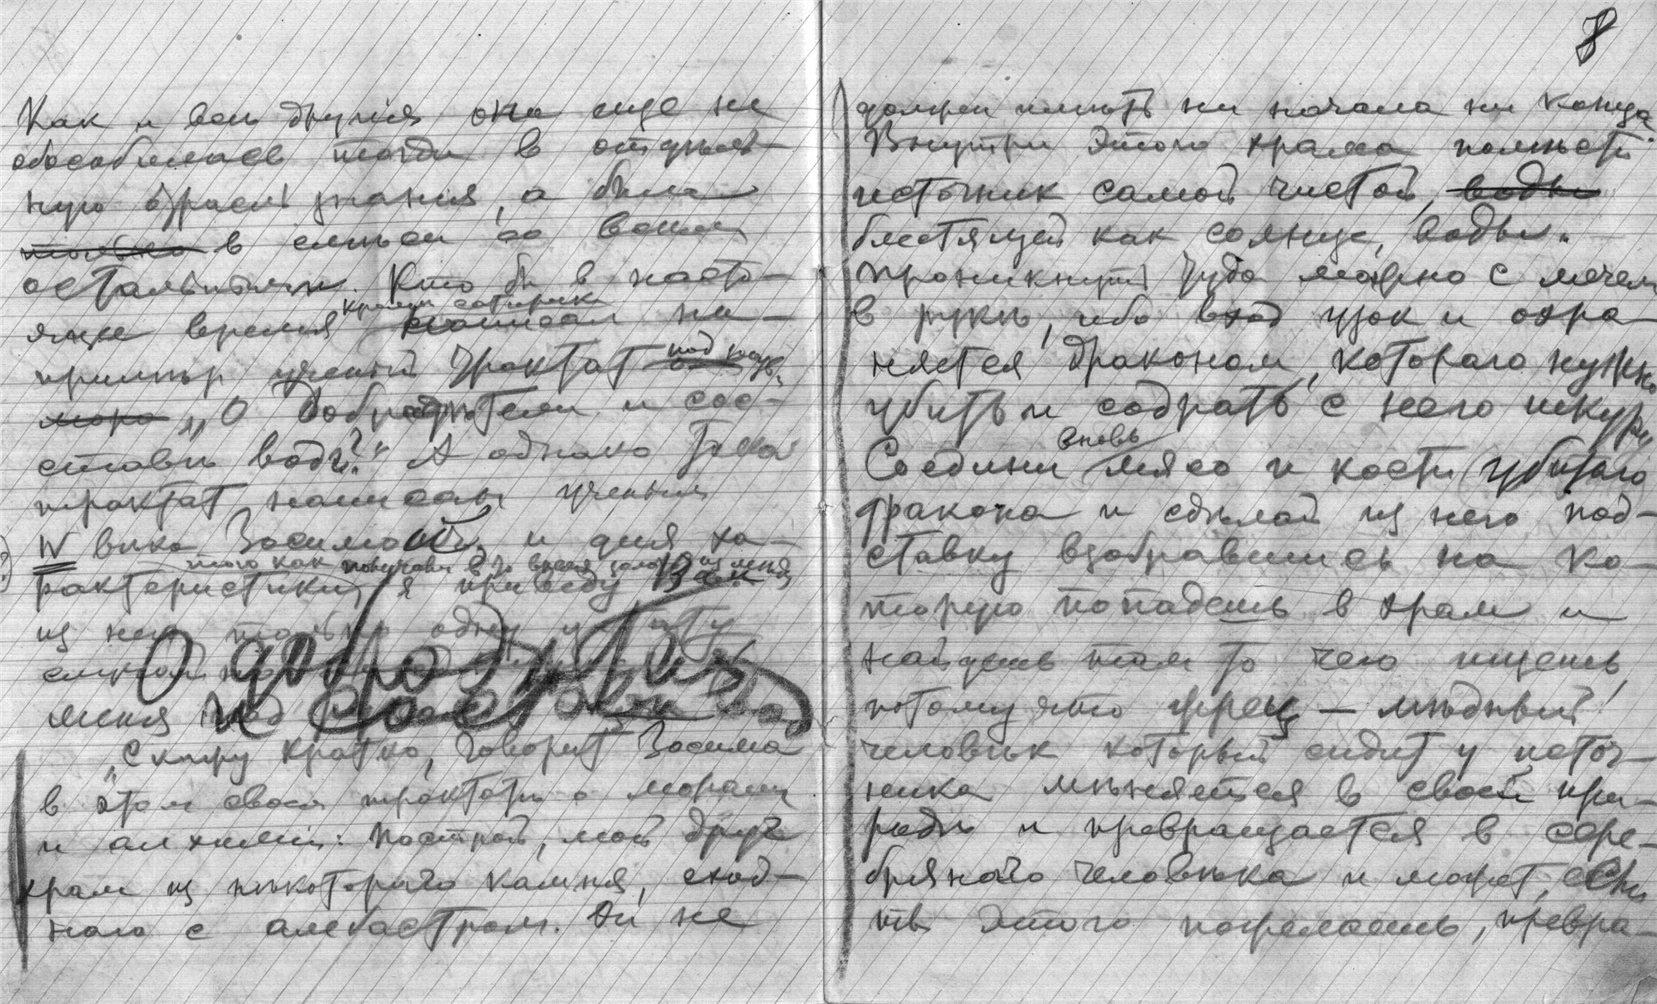 Как и всѣ другія она еще не
обособилась тогда в отдѣль-
ную отрасль знанія, а была
только в смѣси со всѣми
остальными. Кто бы в насто-
ящее время кромѣ сатирика написал на-
примѣр ученый трактат под
"О Добродѣтели и сос-
ставѣ воды?" А однако такой
трактат написал ученый
IV вѣка Зосима и для ха-
того как получали в то время золото
рактеристики я приведу Вам
из него только одну
О добродѣтели
и составѣ вод
"Скажу кратко, говорит Зосима
в этом своем трактатѣ о морали
и алхиміи: Построй, мой друг
храм из нѣкотораго камня, сход-
наго с алебастром. Он не
8
должен имѣть ни начала ни конца.
Внутри этого храма помѣсти
источник самой чистой, воды
блестящей как солнце, воды.
Проникнуть туда можно с мечем
в рукѣ, ибо вход узок и охра-
няется драконом, котораго нужно
убить и содрать с него шкуру
Соедини вновь мясо и кости убитаго
дракона и сдѣлай из него под-
ставку взобравшись на ко-
торую попадешь в храм и
найдешь там то чего ищешь,
потому что жрец — мѣдный
человѣк который сидит у источ-
ника мѣняется в своей при-
родѣ и превращается в сере-
брянаго человѣка и может, если
ты этого пожелаешь, превра-